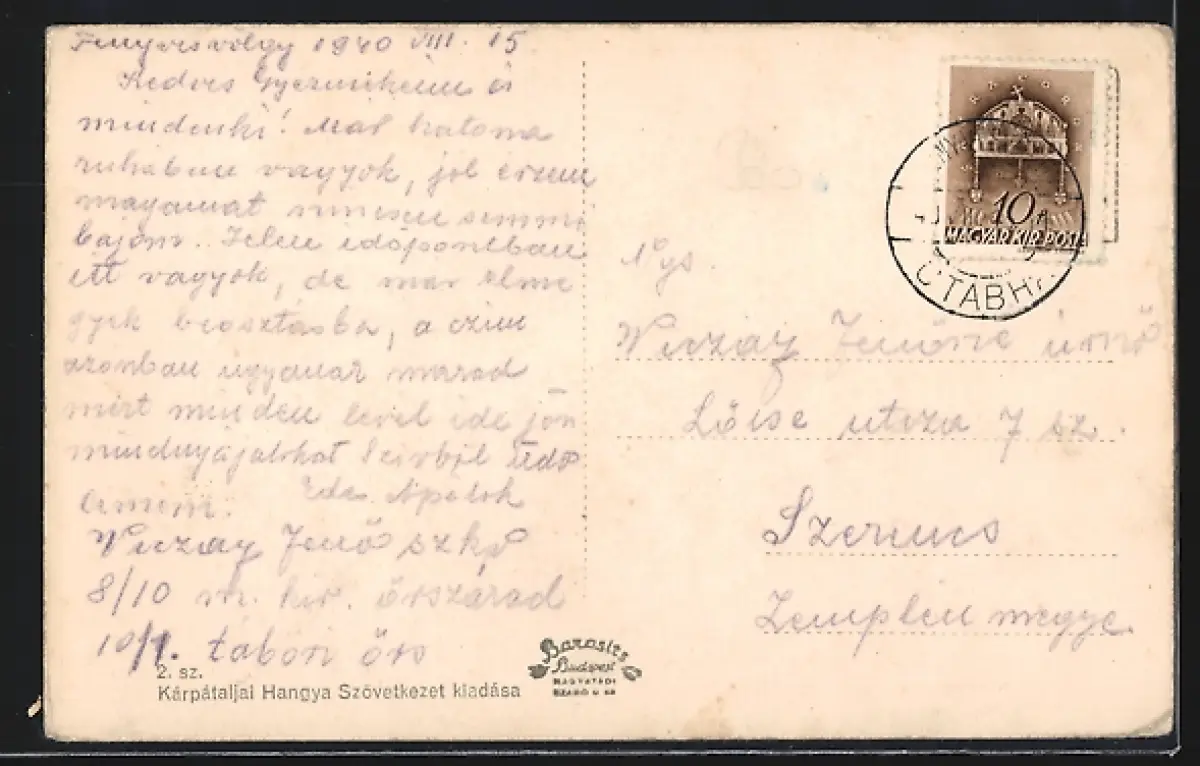 Fenyvesvölgy 1940 VIII. 15
Kedves Gyermekeim és
mindenki! Már katona
ruhában vagyok, jól érzem
magamat nincsen semmi
bajom. Jelen időpontban
itt vagyok, de már elme
gyek beosztásba, a czim
azonban ugyanaz marad
mert minden levél ide jön
mindnyájatokat szivből üdv
Édes Apátok
Viczay Jenő szkv
8/10 m. kir. őrszázad
10/1. tábori őrs
2. sz.
Kárpátaljai Hangya Szövetkezet kiadása
Barasits
Budapest
10 f
MAGYAR KIR. POSTA
CTABH
Ngs.
Viczay Jenőné úrnő
Lőcse utcza 7 sz.
Szerencs
Zemplén megye.